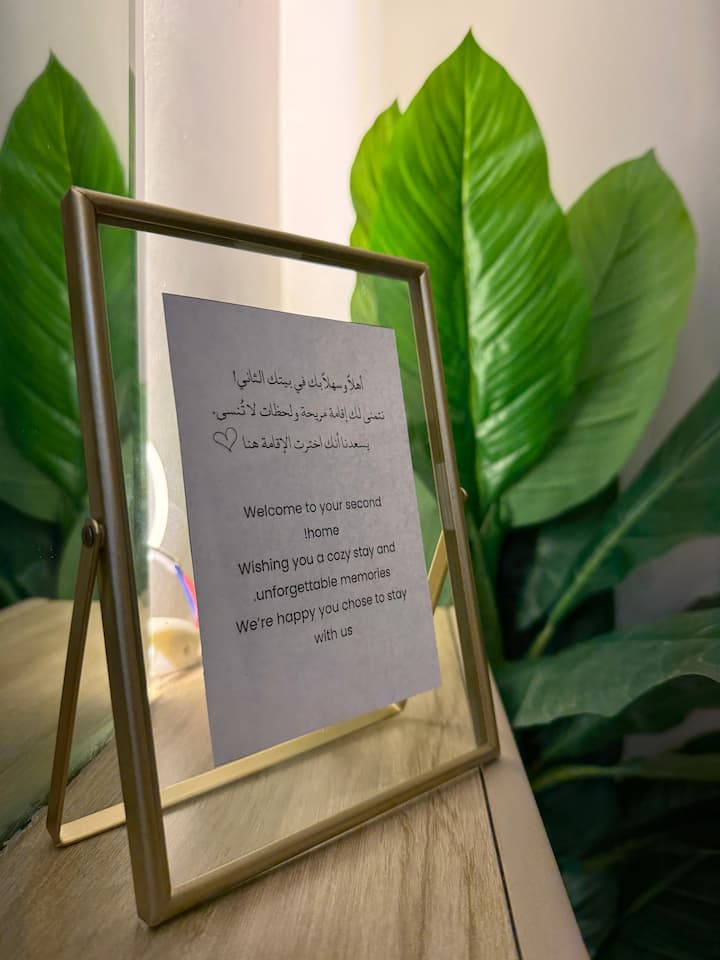 أهلاً وسهلاً بك في بيتك الثاني!
نتمنى لك إقامة مريحة ولحظات لا تُنسى.
يسعدنا أنك اخترت الإقامة هنا ♡
Welcome to your second
!home
Wishing you a cozy stay and
.unforgettable memories
We're happy you chose to stay
with us